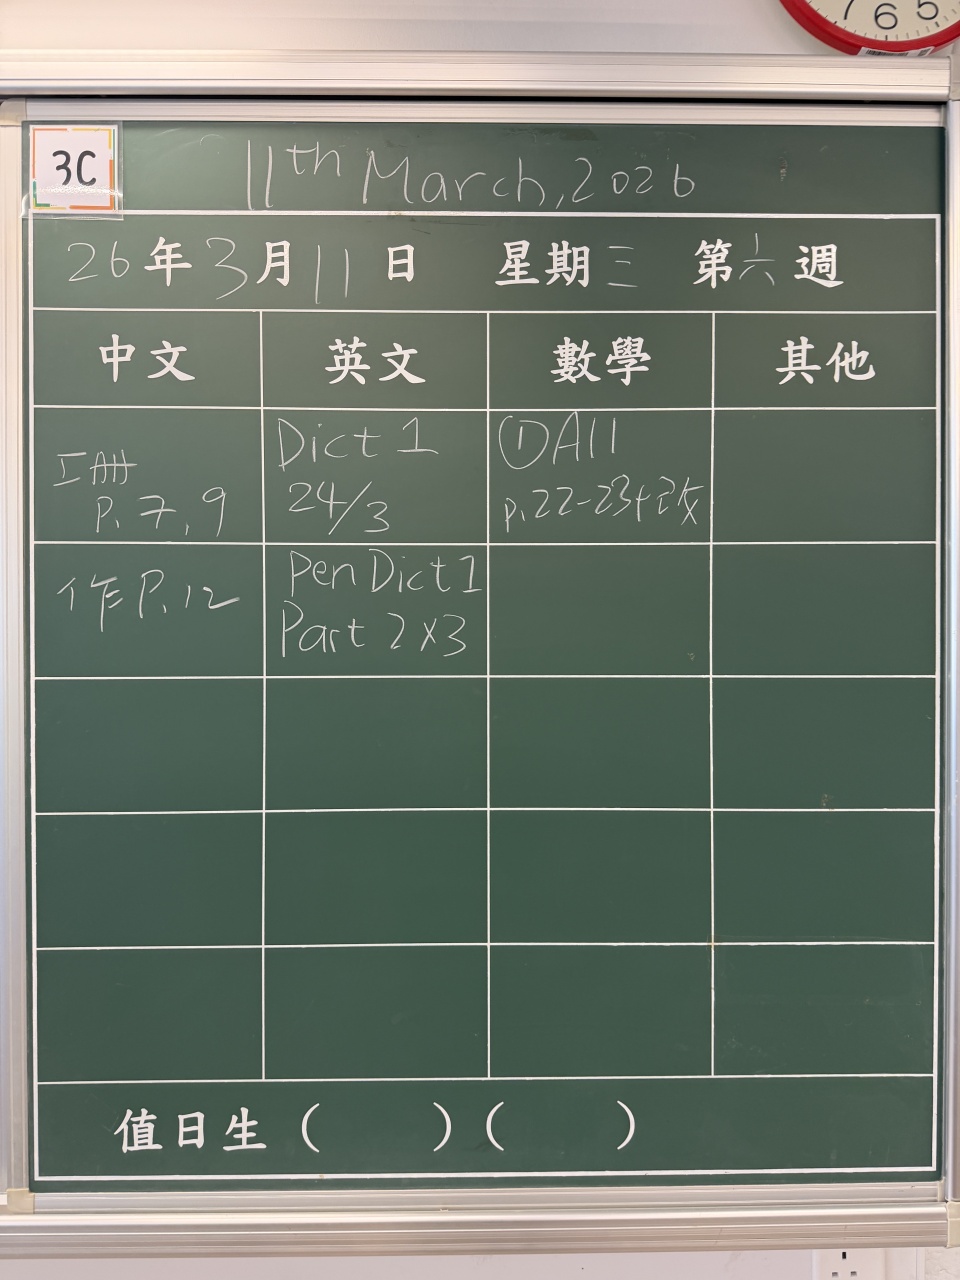 7 6 5
3C
11th March, 2026
26年3月11日 星期三 第六週
中文 英文 數學 其他
工冊
P. 7, 9
Dict 1
24/3
①A11
p.22-23+改
作 P. 12
Pen Dict 1
Part 2 x3
值日生 ( ) ( )